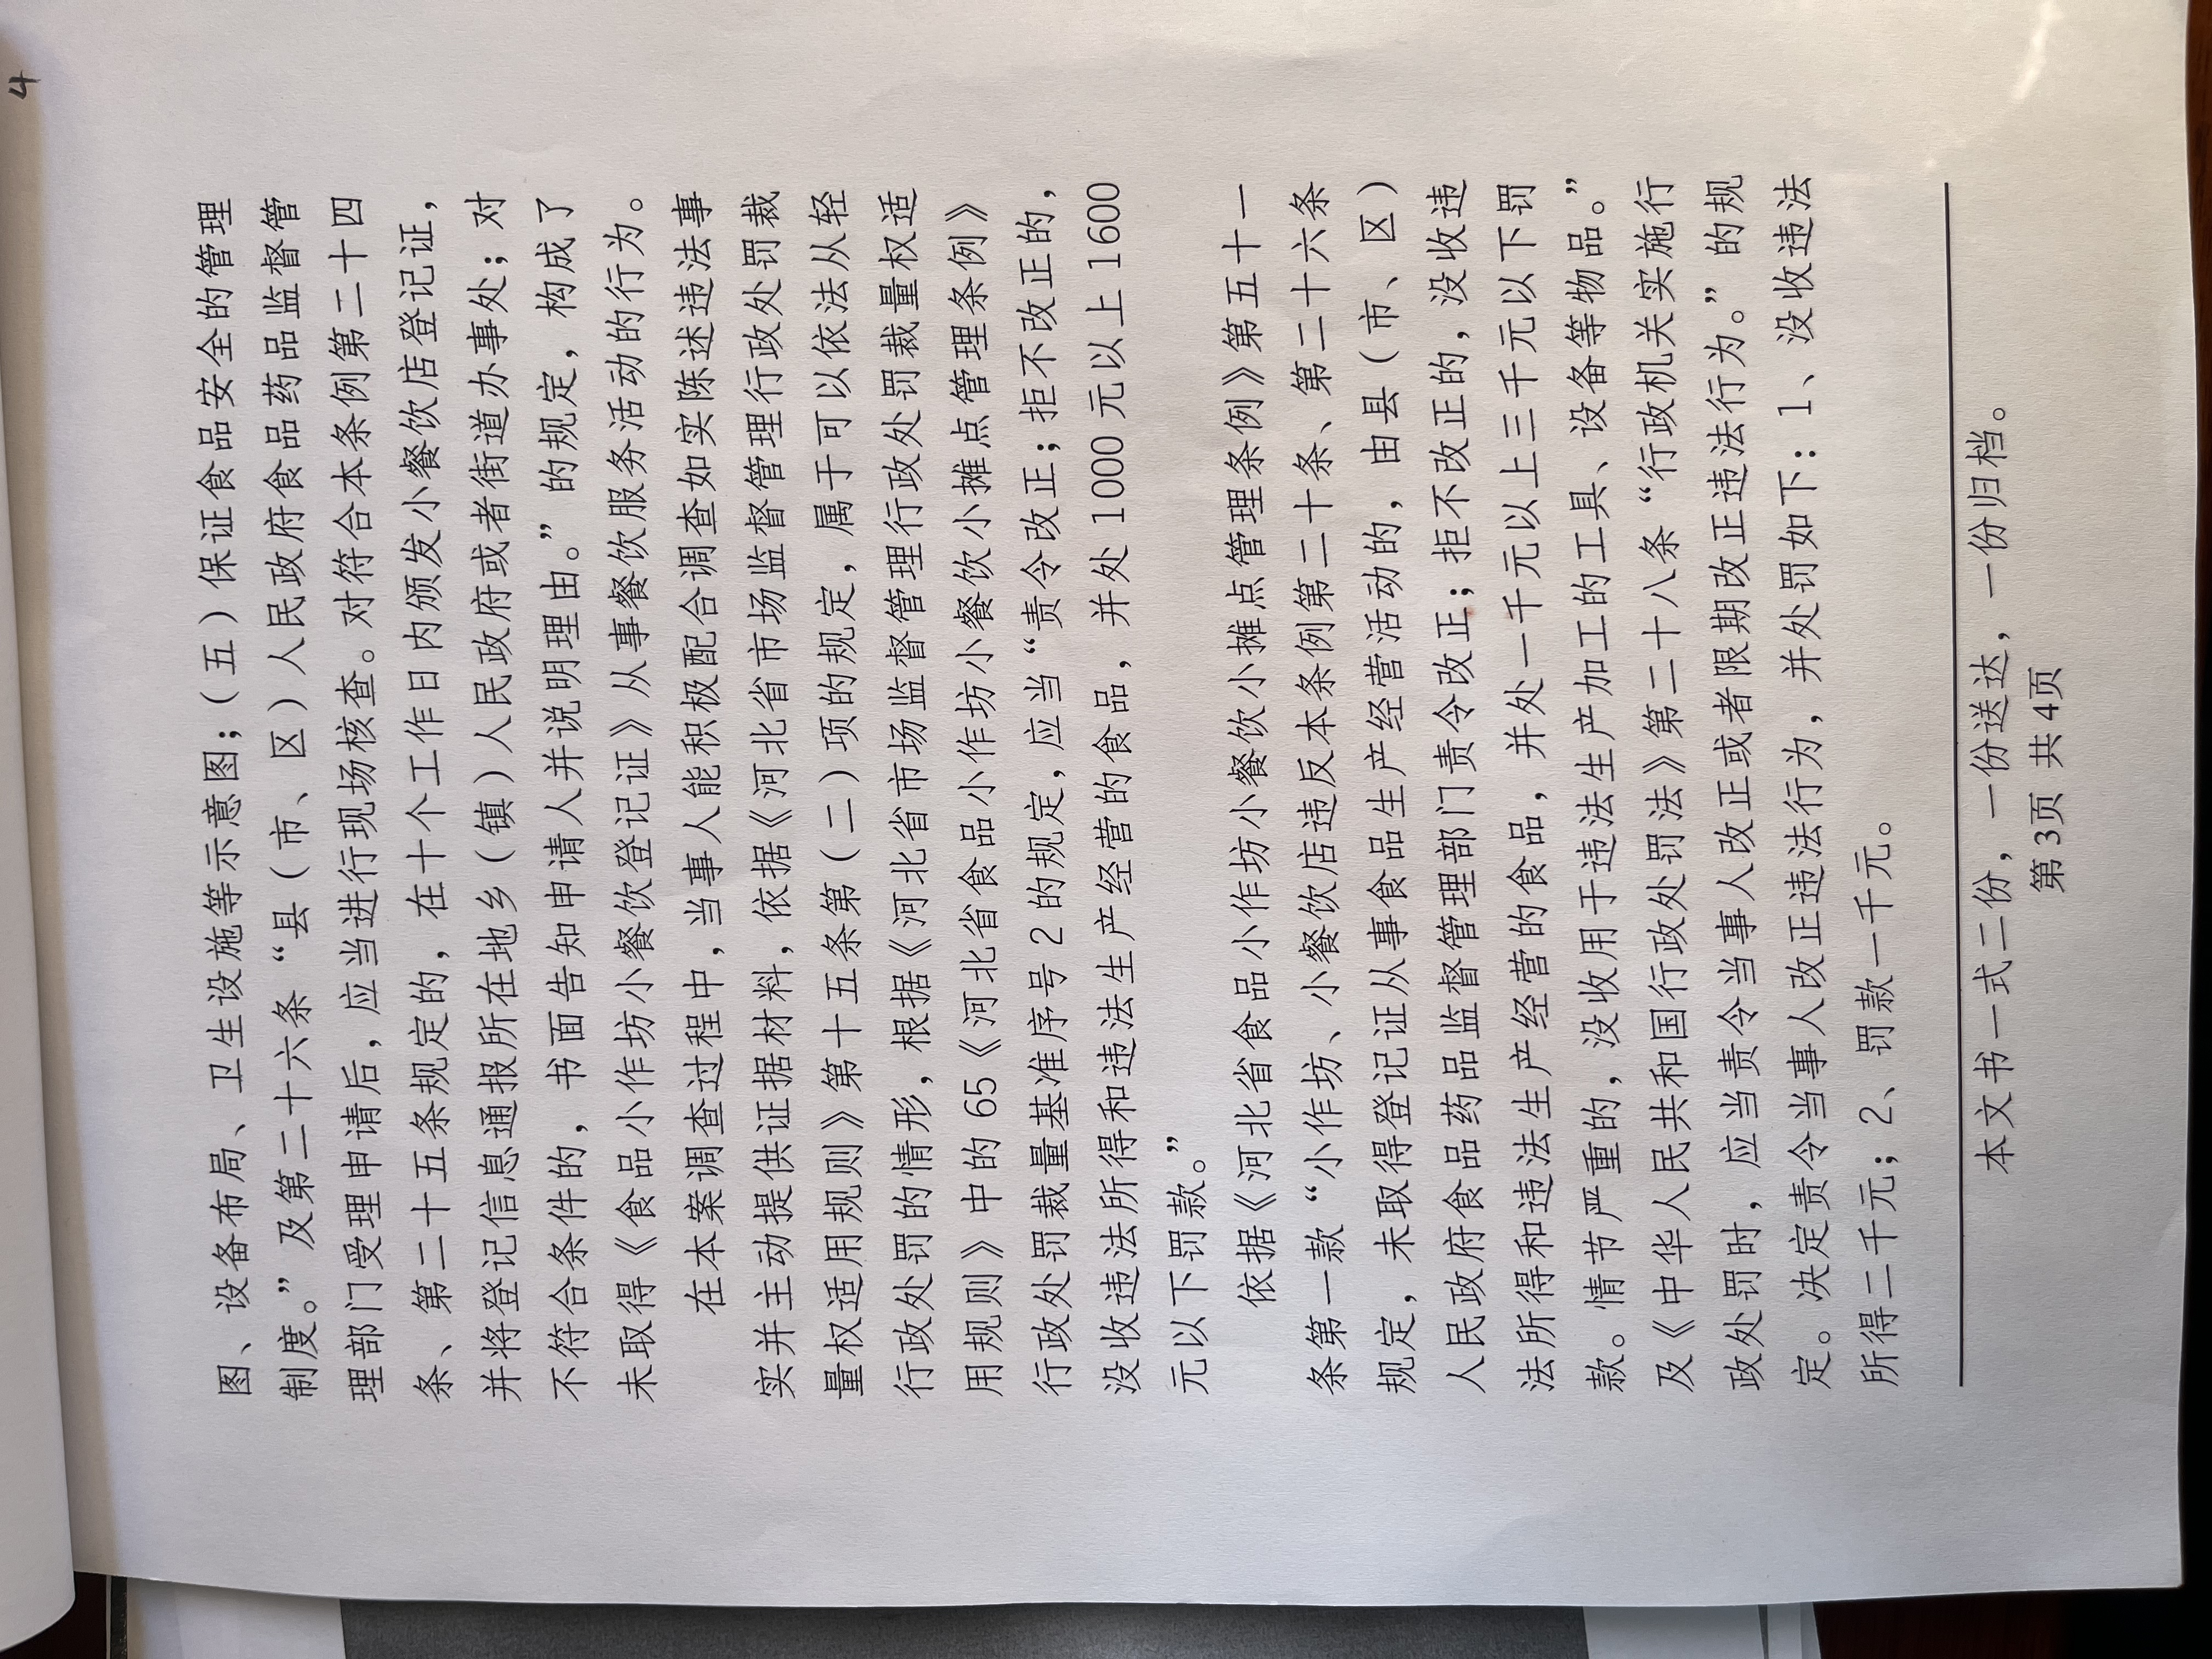 4
图、设备布局、卫生设施等示意图；（五）保证食品安全的管理
制度。”及第二十六条“县（市、区）人民政府食品药品监督管
理部门受理申请后，应当进行现场核查。对符合本条例第二十四
条、第二十五条规定的，在十个工作日内颁发小餐饮店登记证，
并将登记信息通报所在地乡（镇）人民政府或者街道办事处；对
不符合条件的，书面告知申请人并说明理由。”的规定，构成了
未取得《食品小作坊小餐饮登记证》从事餐饮服务活动的行为。
在本案调查过程中，当事人能积极配合调查如实陈述违法事
实并主动提供证据材料，依据《河北省市场监督管理行政处罚裁
量权适用规则》第十五条第（二）项的规定，属于可以依法从轻
行政处罚的情形，根据《河北省市场监督管理行政处罚裁量权适
用规则》中的65《河北省食品小作坊小餐饮小摊点管理条例》
行政处罚裁量基准序号2的规定，应当“责令改正；拒不改正的，
没收违法所得和违法生产经营的食品，并处1000元以上1600
元以下罚款。”
依据《河北省食品小作坊小餐饮小摊点管理条例》第五十一
条第一款“小作坊、小餐饮店违反本条例第二十条、第二十六条
规定，未取得登记证从事食品生产经营活动的，由县（市、区）
人民政府食品药品监督管理部门责令改正；拒不改正的，没收违
法所得和违法生产经营的食品，并处一千元以上三千元以下罚
款。情节严重的，没收用于违法生产加工的工具、设备等物品。”
及《中华人民共和国行政处罚法》第二十八条“行政机关实施行
政处罚时，应当责令当事人改正或者限期改正违法行为。”的规
定。决定责令当事人改正违法行为，并处罚如下：1、没收违法
所得二千元；2、罚款一千元。
本文书一式二份，一份送达，一份归档。
第3页 共4页